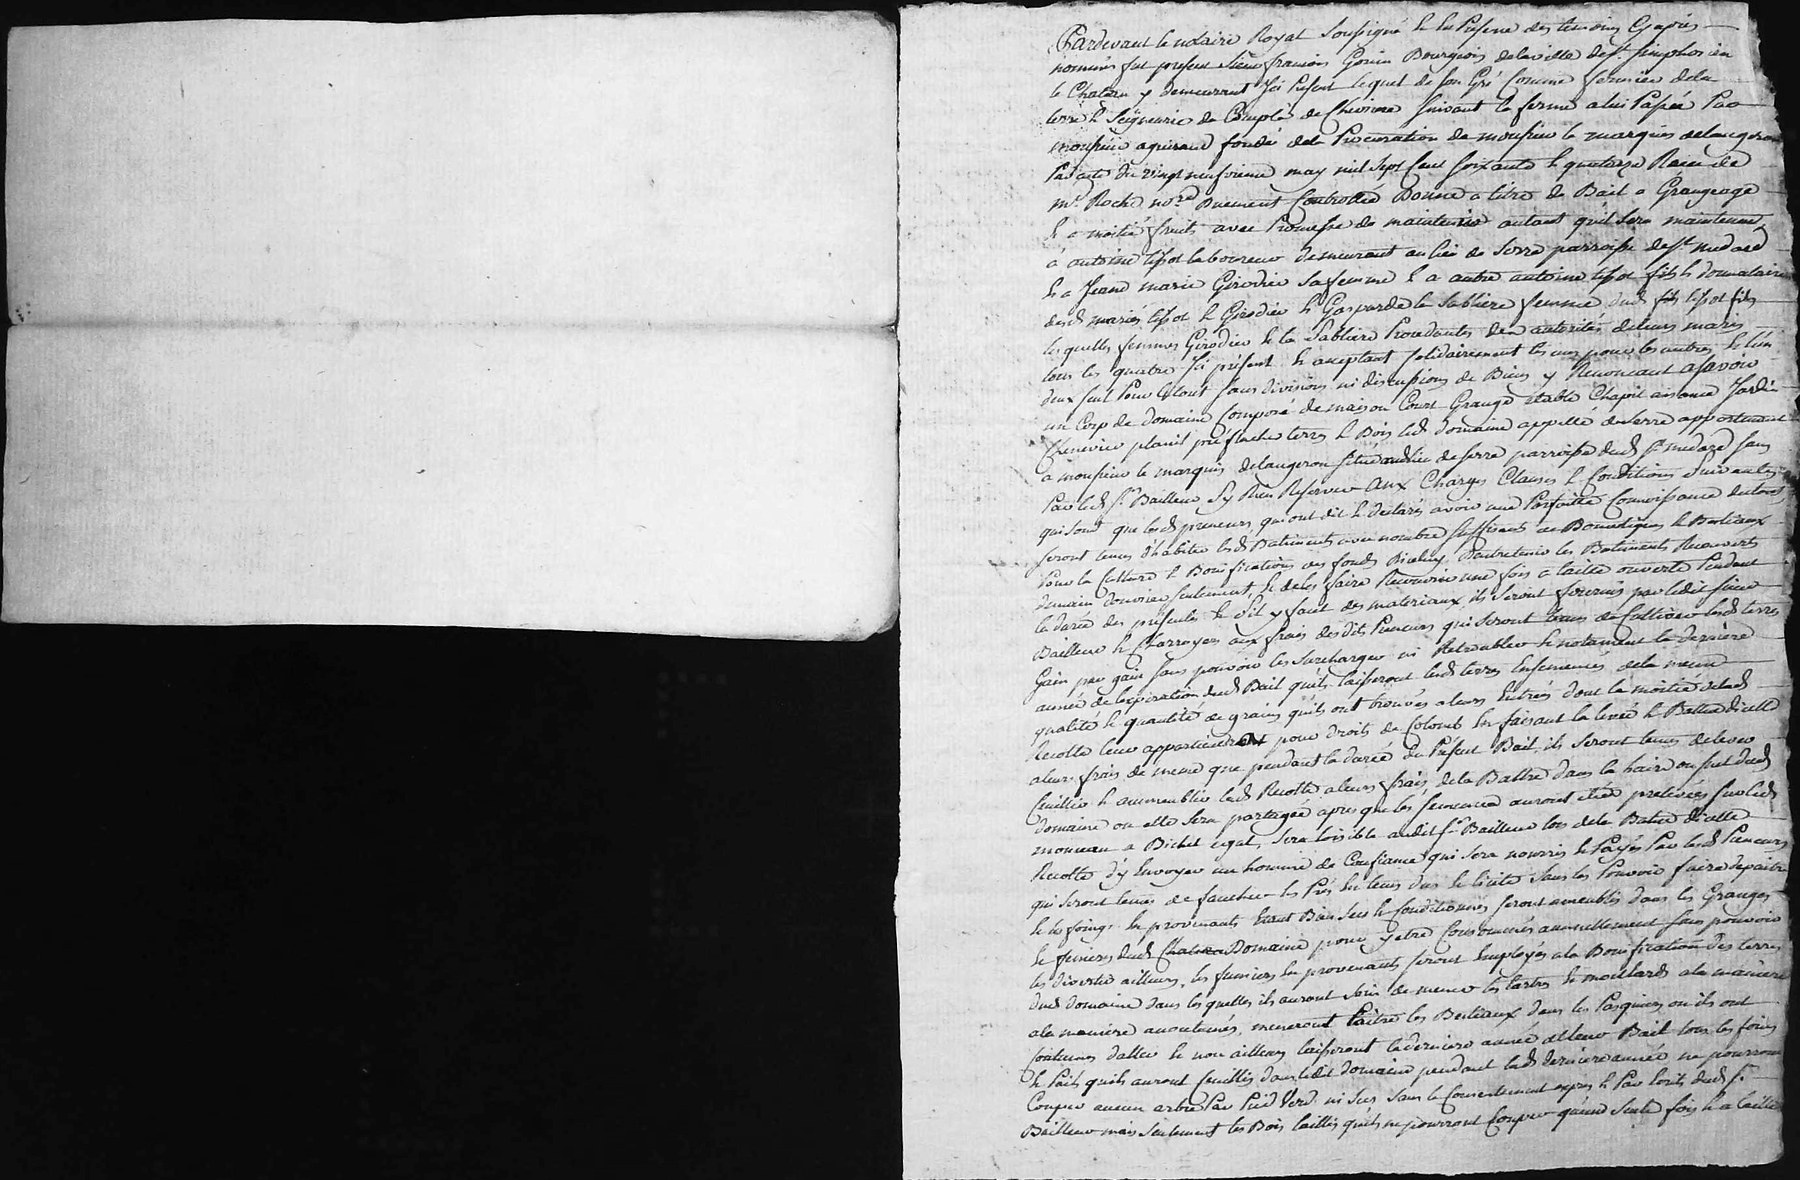 Pardevant le notaire Royal soussigné & En Présence des temoins Cyapres
nommés fut present sieur françois Gonin Bourgeois de la ville de st simphorien
le Chateau y demeurant Ici Présent lequel de son Gré Comme fermier de la
terre & Seigneurie de Chevrieres suivant la ferme a lui Passée Par
monsieur aguiraud fondé de la Procuration de monsieur le marquis delangeron
Par acte du vingt neufvieme may mil sept Cent soixante & quatorze Receu
mr Roche nore Duement Controollé Donne a titre de Bail a Grangeage
& a moitié fruits avec Promesse de maintenir autant qu'il sera maintenu
a antoine tissot laboureur demeurant au lieu de Serre parroisse de st medard
& a Jeane marie Girodier sa femme & a autre antoine tissot fils & donnataire
desd mariés tissot & Girodier & Gasparde la Sabliere femme dud tissot fils
les quelles femmes Girodier & la Sabliere Procedantes de autorités de leurs maris
tous les quatre Ici présent & acceptant solidairement les uns pour les autres & l'un
deux seul Pour le tout sans divisions ni discussions de Biens y Renonceant asavoir
un Corp de domaine Composé de maison Court Grange etable Chapit aisance Jardin
Chenevier pré terres & Bois led domaine appellé de Serre appartenant
a monsieur le marquis delangeron situé audit lieu de serre parroisse dud st medard sans
Par led sr Bailleur s'y Rien Reserver aux Charges Clauses & Conditions suivantes
qui sont que lesd preneurs qui ont dit & declaré avoir une Parfaitte Connoissance du tout
seront tenus d'habiter lesd Batiments avec nombre suffisant de Domestiques & Bestiaux
Pour la Culture & Bonifications des fonds D'entretenir les Batiments Recouverts
de main d'ouvrier seulement, & de les faire Recouvrir une fois a taille ouverte Pendant
la durée des présentes & s'il y faut des materiaux ils seront fournis par ledit sieur
Bailleur & Charroyés aux frais desdits Preneurs qui seront tenus de Cultiver lesd terres
Gain par gain sans pouvoir les surcharger ni Retroubler & notamment la derniere
année de l'expiration dud Bail qu'ils laisseront lesd terres Ensemencés de la meme
qualité & quantité de grains qu'ils ont trouvés a leurs Entrée dont la moitié de lad
Recolte leur appartiendront pour droits de Colons En faisant la levée & Batture d'icelle
a leurs frais de meme que pendant la durée du Présent Bail, ils seront tenus de lever
cuillir & ammeublir lad Recolte a leurs frais de la Battre dans la haire ou suel dud
domaine ou elle sera partagée apres que les semences auront été prelevées sur led
monceau a Bichet egal, sera loisible audit sr Bailleur lors de la Batue d'icelle
Recolte d'y Envoyer un homme de Confiance qui sera nourris & Payés Par lesd Preneurs
qui seront tenus de faucher les Prés En tems dus & licite sans les Pouvoir faire depaitre
& les foings En provenants Etant Bien secs & Conditionnés seront ameublis dans les Granges
& dud Chateau Domaine pour y etre Consommés annuellement sans pouvoir
les divertir ailleurs, les fumiers En provenants seront Employés a la Bonification des terres
dud domaine dans les quelles ils auront soin de mener les & a la maniere
a la maniere accoutumés, meneront Paitre les Bestiaux dans les Pasquiers ou ils ont
Coutumes d'aller & non ailleurs laisseront la derniere année de leur Bail tous les foins
& Pails qu'ils auront Cuillis dans ledit domaine pendant lad derniere année ne pourront
Couper aucun arbre Par Pied Verd ni Sec sans le Consentement expres & Par Ecrits dud sr
Bailleur mais seulement les Bois taillis qu'ils ne pourront Couper qu'une seule fois & a taillis